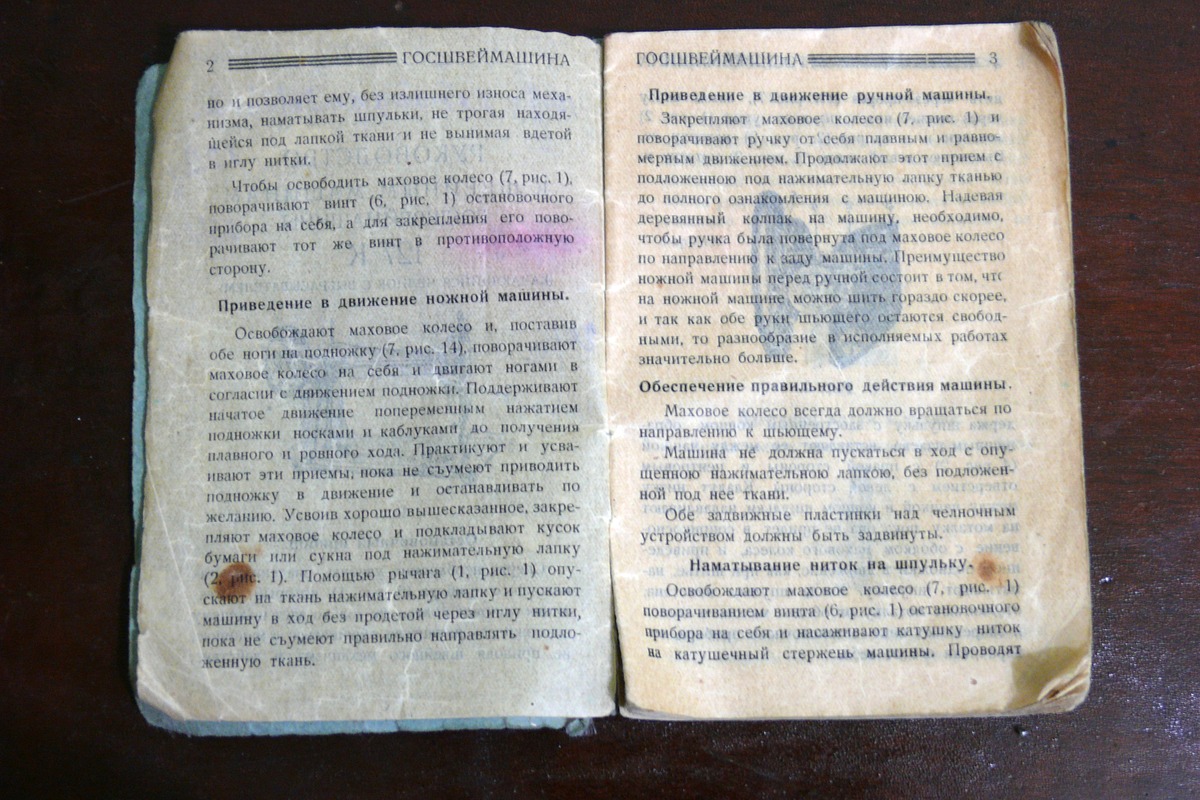 2 ГОСШВЕЙМАШИНА
но и позволяет ему, без излишнего износа меха-
низма, наматывать шпульки, не трогая находя-
щейся под лапкой ткани и не вынимая вдетой
в иглу нитки.
Чтобы освободить маховое колесо (7, рис. 1),
поворачивают винт (6, рис. 1) остановочного
прибора на себя, а для закрепления его пово-
рачивают тот же винт в противоположную
сторону.
Приведение в движение ножной машины.
Освобождают маховое колесо и, поставив
обе ноги на подножку (7, рис. 14), поворачивают
маховое колесо на себя и двигают ногами в
согласии с движением подножки. Поддерживают
начатое движение попеременным нажатием
подножки носками и каблуками до получения
плавного и ровного хода. Практикуют и усва-
ивают эти приемы, пока не съумеют приводить
подножку в движение и останавливать по
желанию. Усвоив хорошо вышесказанное, закре-
пляют маховое колесо и подкладывают кусок
бумаги или сукна под нажимательную лапку
(2, рис. 1). Помощью рычага (1, рис. 1) опу-
скают на ткань нажимательную лапку и пускают
машину в ход без продетой через иглу нитки,
пока не съумеют правильно направлять подло-
женную ткань.
ГОСШВЕЙМАШИНА 3
Приведение в движение ручной машины.
Закрепляют маховое колесо (7, рис. 1) и
поворачивают ручку от себя плавным и равно-
мерным движением. Продолжают этот прием с
подложенною под нажимательную лапку тканью
до полного ознакомления с машиною. Надевая
деревянный колпак на машину, необходимо,
чтобы ручка была повернута под маховое колесо
по направлению к заду машины. Преимущество
ножной машины перед ручной состоит в том, что
на ножной машине можно шить гораздо скорее,
и так как обе руки шьющего остаются свобод-
ными, то разнообразие в исполняемых работах
значительно больше.
Обеспечение правильного действия машины.
Маховое колесо всегда должно вращаться по
направлению к шьющему.
Машина не должна пускаться в ход с опу-
щенною нажимательною лапкою, без подложен-
ной под нее ткани.
Обе задвижные пластинки над челночным
устройством должны быть задвинуты.
Наматывание ниток на шпульку.
Освобождают маховое колесо (7, рис. 1)
поворачиванием винта (6, рис. 1) остановочного
прибора на себя и насаживают катушку ниток
на катушечный стержень машины. Проводят